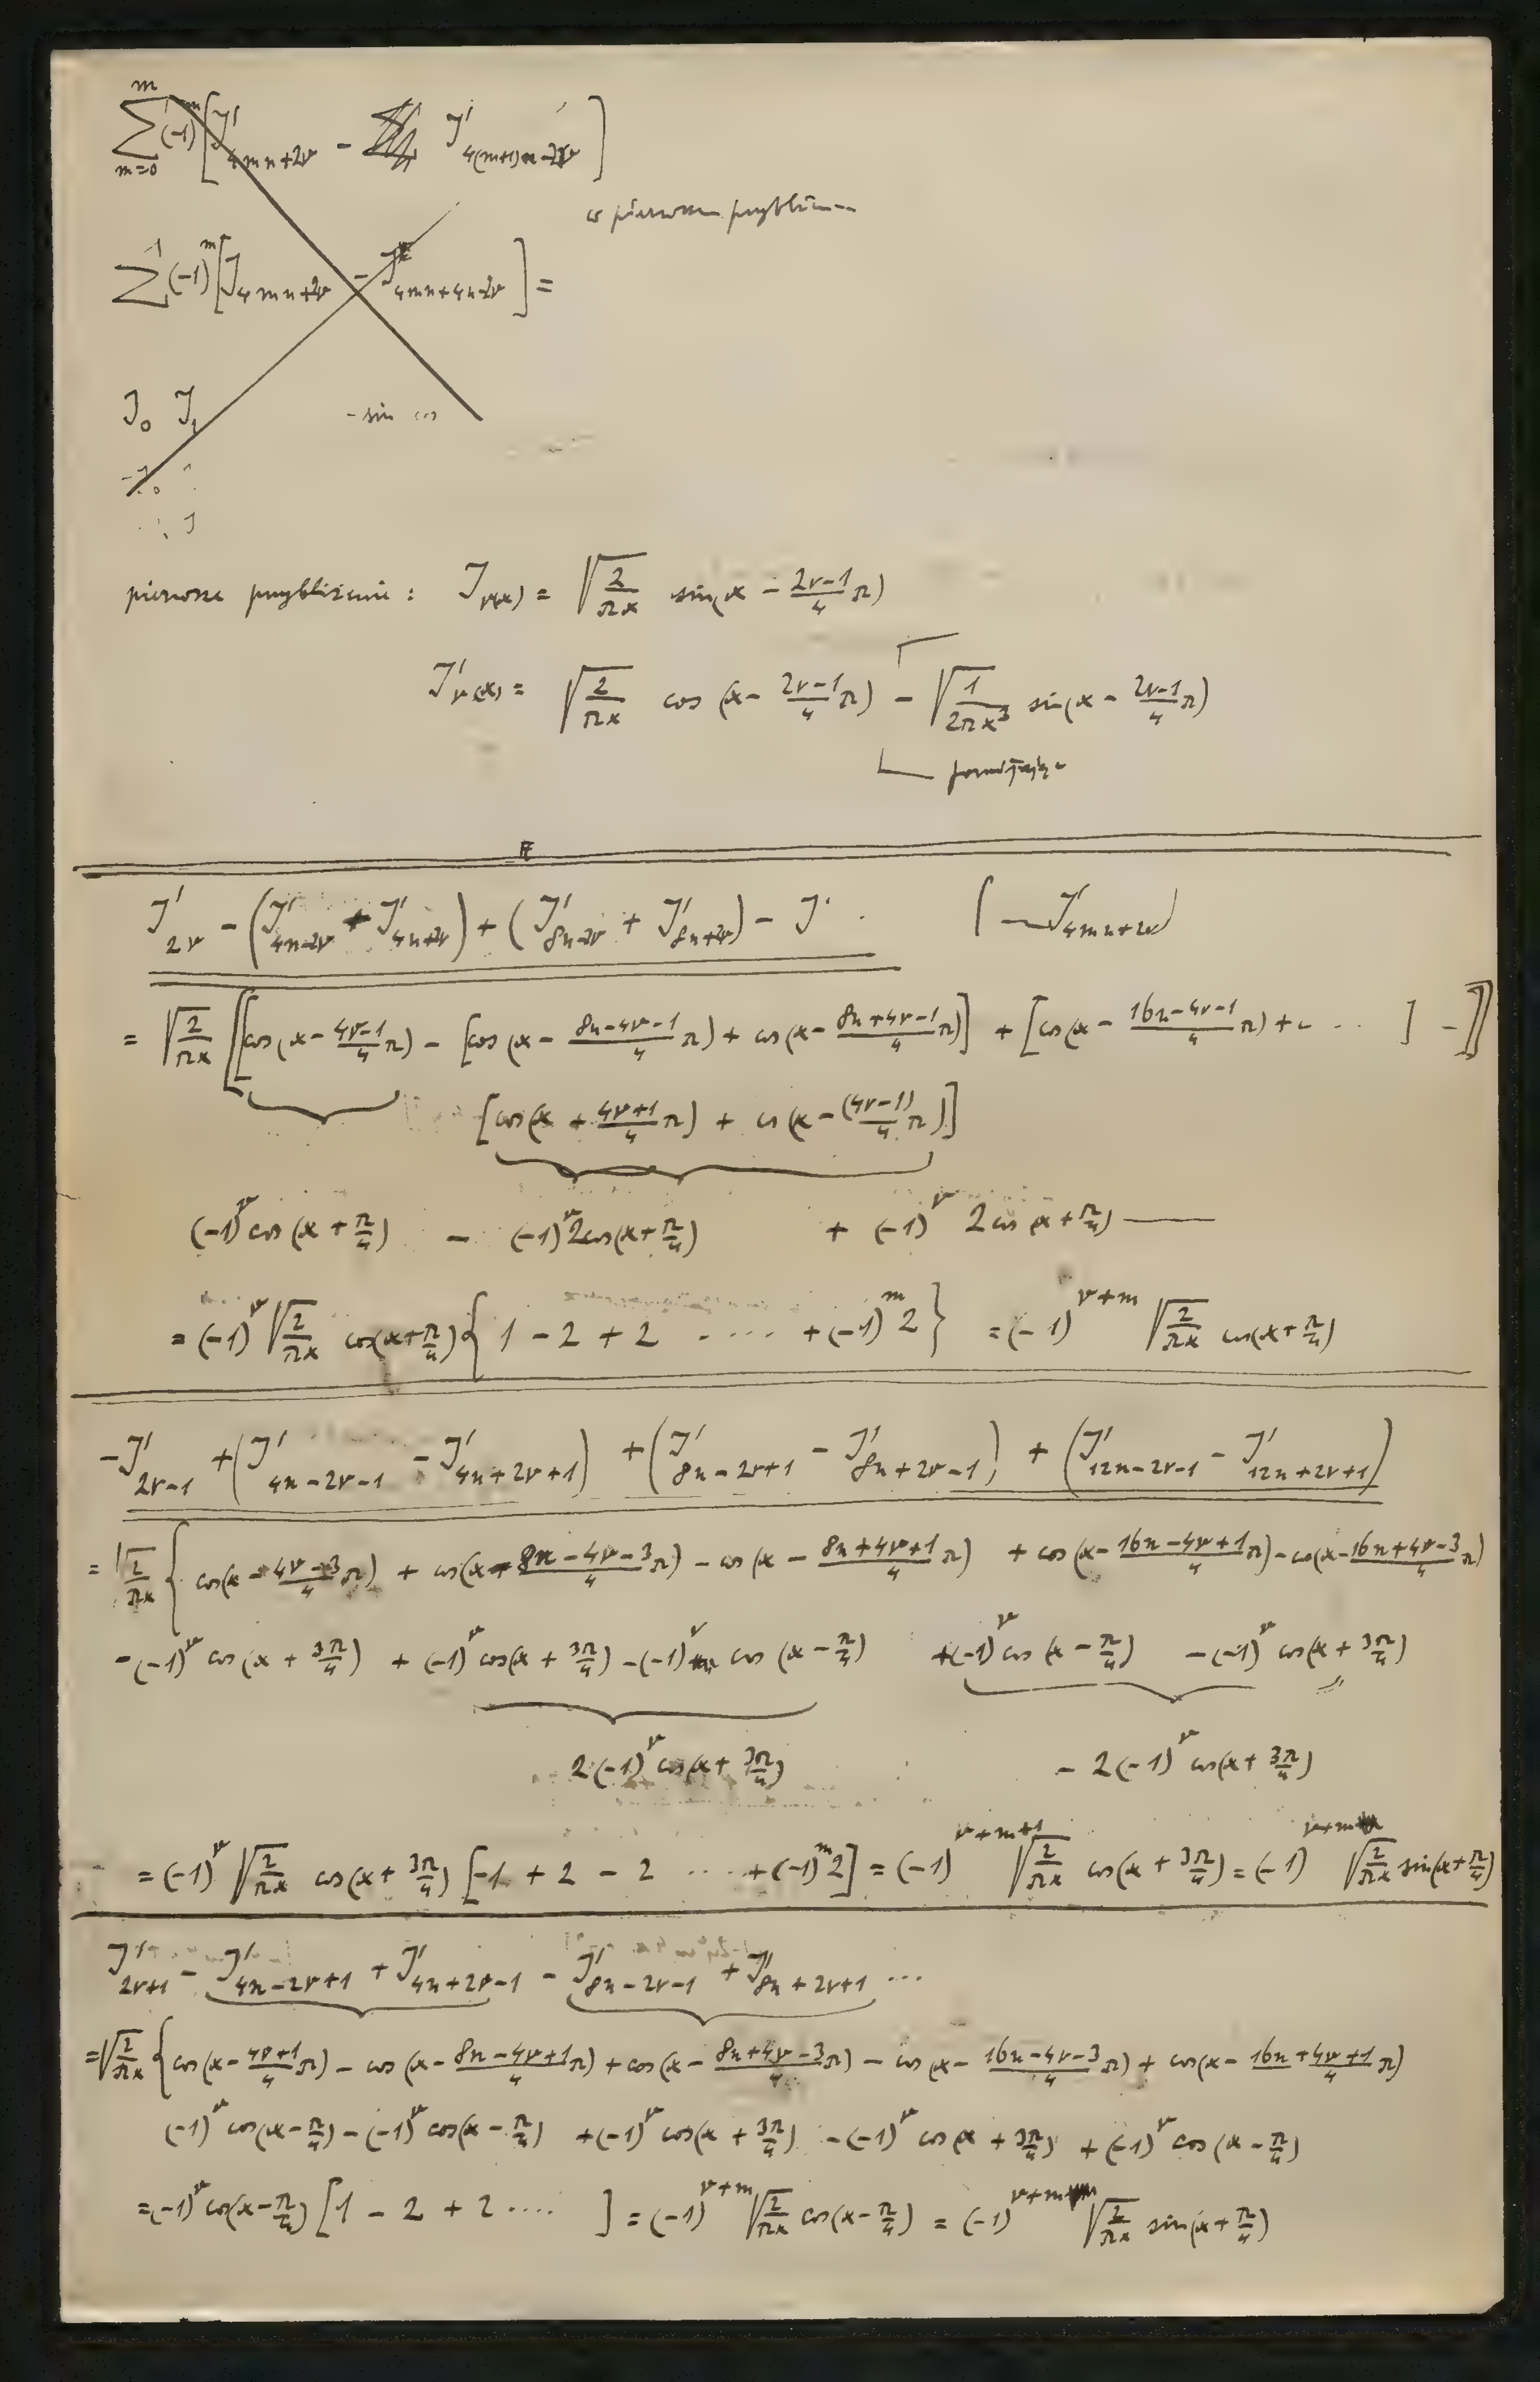 m
∑ (-1)^m [J'_{4mn+2ν} - J'_{4(m+1)n-2ν}]
m=0
w pierwszem przybliżeniu
∑ (-1)^m [J_{4mn+2ν} - J_{4mn+4n-2ν}] =
J_0 J_1 -sin cos
-J_0
J
pierwsze przybliżenie : J_ν(x) = √(2/πx) sin(x - (2ν-1)/4 π)
J'_ν(x) = √(2/πx) cos(x - (2ν-1)/4 π) - √(1/2πx³) sin(x - (2ν-1)/4 π)
J'_{2ν} - (J'_{4n-2ν} + J'_{4n+2ν}) + (J'_{8n-2ν} + J'_{8n+2ν}) - J' . [ — J'_{4mn+2ν}]
= √(2/πx) [[cos(x - (4ν-1)/4 π) - [cos(x - (8n-4ν-1)/4 π) + cos(x - (8n+4ν-1)/4 π)] + [cos(x - (16n-4ν-1)/4 π) + ... ] - ]]
[cos(x + (4ν+1)/4 π) + cs(x - (4ν-1)/4 π)]
(-1)^ν cos(x + π/4) - (-1)^ν 2cos(x + π/4) + (-1)^ν 2cos(x + π/4) ——
= (-1)^ν √(2/πx) cos(x + π/4) {1 - 2 + 2 ..... + (-1)^m 2} = (-1)^{ν+m} √(2/πx) cos(x + π/4)
-J'_{2ν-1} + (J'_{4n-2ν-1} - J'_{4n+2ν+1}) + (J'_{8n-2ν+1} - J'_{8n+2ν-1}) + (J'_{12n-2ν-1} - J'_{12n+2ν+1})
= √(2/πx) { cos(x - (4ν-3)/4 π) + cos(x - (8n-4ν-3)/4 π) - cos(x - (8n+4ν+1)/4 π) + cos(x - (16n-4ν+1)/4 π) - cos(x - (16n+4ν-3)/4 π)
-(-1)^ν cos(x + 3π/4) + (-1)^ν cos(x + 3π/4) - (-1)^ν cos(x - π/4) + (-1)^ν cos(x - π/4) - (-1)^ν cos(x + 3π/4)
2(-1)^ν cos(x + 3π/4) - 2(-1)^ν cos(x + 3π/4)
= (-1)^ν √(2/πx) cos(x + 3π/4) [-1 + 2 - 2 .... + (-1)^m 2] = (-1)^{ν+m+1} √(2/πx) cos(x + 3π/4) = (-1)^{ν+m} √(2/πx) sin(x + π/4)
J'_{2ν+1} - J'_{4n-2ν+1} + J'_{4n+2ν-1} - J'_{8n-2ν-1} + J'_{8n+2ν+1} ...
= √(2/πx) { cos(x - (4ν+1)/4 π) - cos(x - (8n-4ν+1)/4 π) + cos(x - (8n+4ν-3)/4 π) - cos(x - (16n-4ν-3)/4 π) + cos(x - (16n+4ν+1)/4 π)
(-1)^ν cos(x - π/4) - (-1)^ν cos(x - π/4) + (-1)^ν cos(x + 3π/4) - (-1)^ν cos(x + 3π/4) + (-1)^ν cos(x - π/4)
= (-1)^ν cos(x - π/4) [1 - 2 + 2 .... ] = (-1)^{ν+m} √(2/πx) cos(x - π/4) = (-1)^{ν+m} √(2/πx) sin(x + π/4)